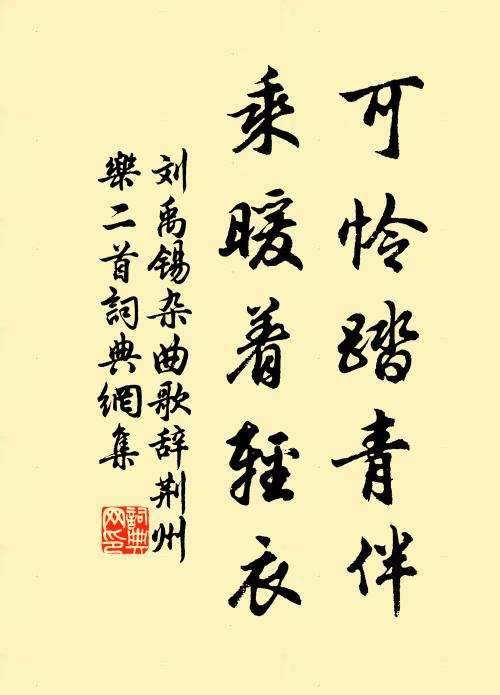 可怜踏青伴
乘暖着輕衣
刘禹锡杂曲歌辞荆州
樂二首詞典網集
詞典
网印